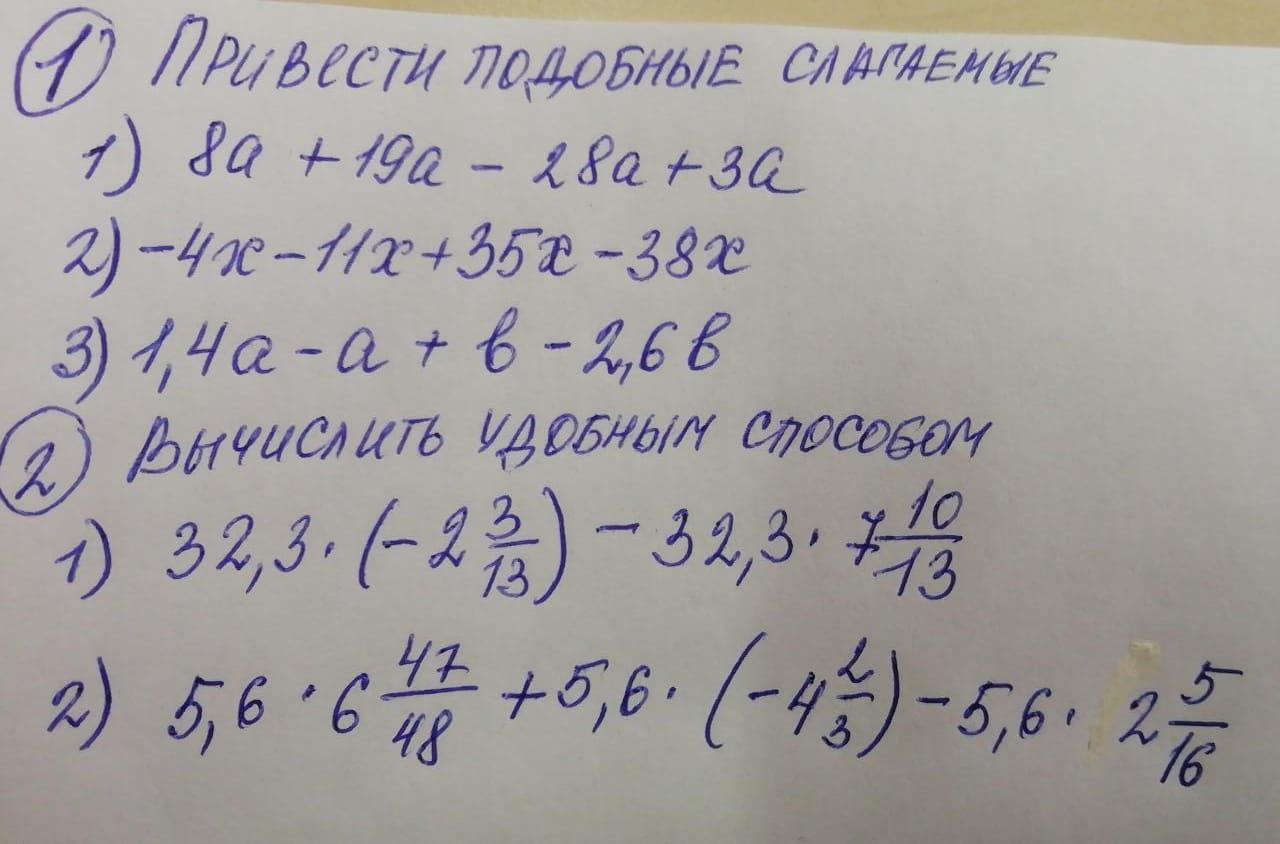 1 Привести подобные слагаемые
1) 8a + 19a - 28a + 3a
2) -4x - 11x + 35x - 38x
3) 1,4a - a + в - 2,6в
2 Вычислить удобным способом
1) 32,3 · (-2 3/13) - 32,3 · 7 10/13
2) 5,6 · 6 47/48 + 5,6 · (-4 2/3) - 5,6 · 2 5/16